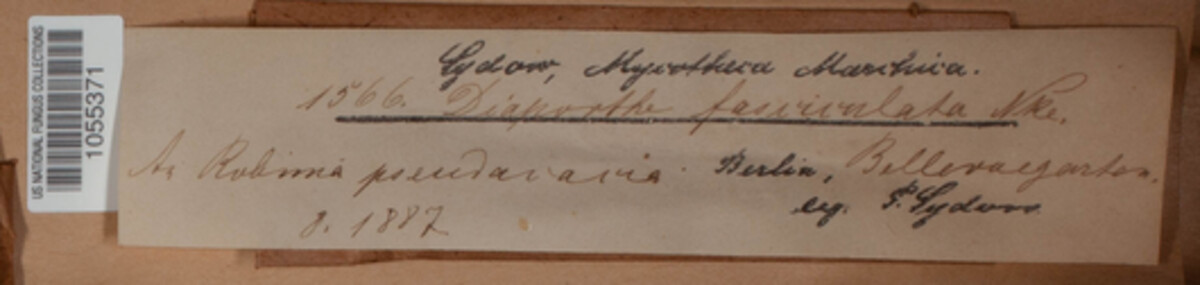 US NATIONAL FUNGUS COLLECTIONS
1055371
Sydow, Mycotheca Marchica.
1566. Diaporthe fasciculata Nke.
Robinia pseudacacia. Berlin, Bellevuegarten.
8. 1887 leg. P. Sydow